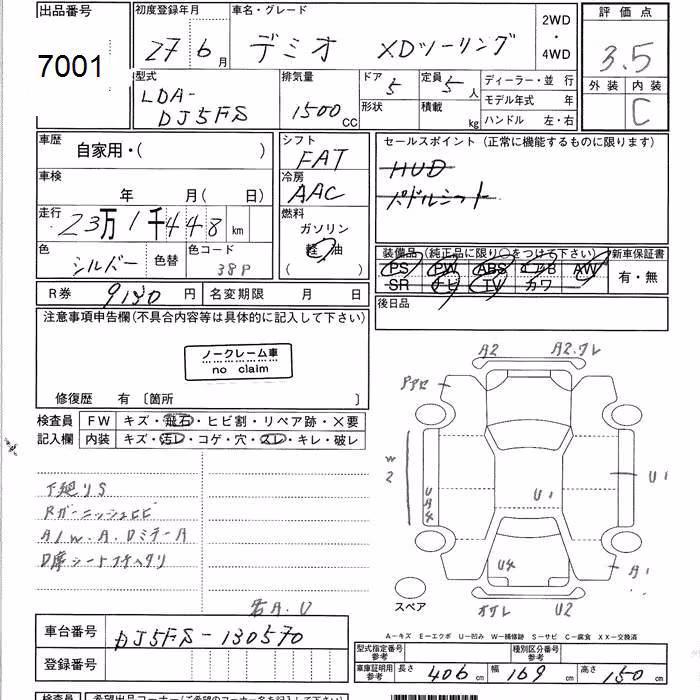 出品番号
7001
初度登録年月
27 6 月
車名・グレード
デミオ XDツーリング
2WD
・
4WD
評価点
3.5
外装 内装
C
型式
LDA-
DJ5FS
排気量
1500 CC
ドア 5
形状
定員 5 人
積載 kg
ディーラー・並 行
モデル年式 年
ハンドル 左・右
車歴
自家用・( )
車検
年 月( 日)
走行
23万1千448 km
色
シルバー
色替
色コード
38P
シフト
FAT
冷房
AAC
燃料
ガソリン
軽 油
( )
セールスポイント (正常に機能するものに限ります)
HUD
パドルシフト
装備品 (純正品に限り○をつけて下さい)
PS PW ABS エアB AW
SR ナビ TV カワ
新車保証書
有・無
後日品
R券 9130 円
名変期限 月 日
注意事項申告欄(不具合内容等は具体的に記入して下さい)
ノークレーム車
no claim
修復歴 有 〔箇所 〕
検査員
記入欄
FW キズ・飛石・ヒビ割・リペア跡・×要
内装 キズ・汚レ・コゲ・穴・スレ・キレ・破レ
下廻りS
A/W.A.DミラーA
若A.U
A2
A2.ワレ
W
2
U
A
4
U1
U1
U4
A1
U2
スペア
車台番号 DJ5FS-130570
登録番号
A-キズ E-エクボ U-凹み W-補修跡 S-サビ C-腐食 XX-交換済
型式指定番号
参考
種別区分番号
参考
車庫証明用
参考
長さ 406 cm
幅 169 cm
高さ 150 cm
検査員
希望出品コーナー(ご希望のコーナー名を記入して下さい)